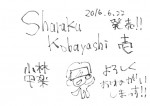 2016.6.22
Sharaku
Kobayashi 壱
発売!!
小林
写楽
よろしく
おねがいい
します!!